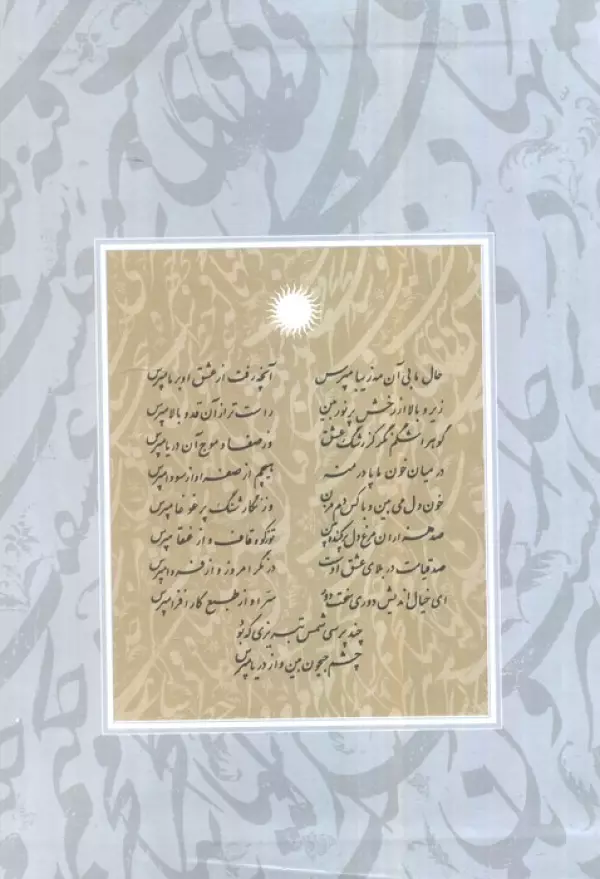 حال ما بی آن مه زیبا مپرس آنچه رفت از عشق او بر ما مپرس
زیر و بالا از رخش پر نور بین راست تر از آن قد و بالا مپرس
گوهر اشکم نگر کز رشک عشق وز صفا و موج آن دریا مپرس
در میان خون ما پا در منه هیچم از صفرا و از سودا مپرس
خون دل می بین و با کس دم مزن وز نگار شنگ پر غوغا مپرس
صد هزاران مرغ دل پر کنده بین تو ز کوه قاف و از عنقا مپرس
صد قیامت در بلای عشق اوست در نگر امروز و از فردا مپرس
ای خیال اندیش دوری سخت دور سر او از طبع کار افزا مپرس
چند پرسی شمس تبریزی که بود
چشم جیحون بین و از دریا مپرس